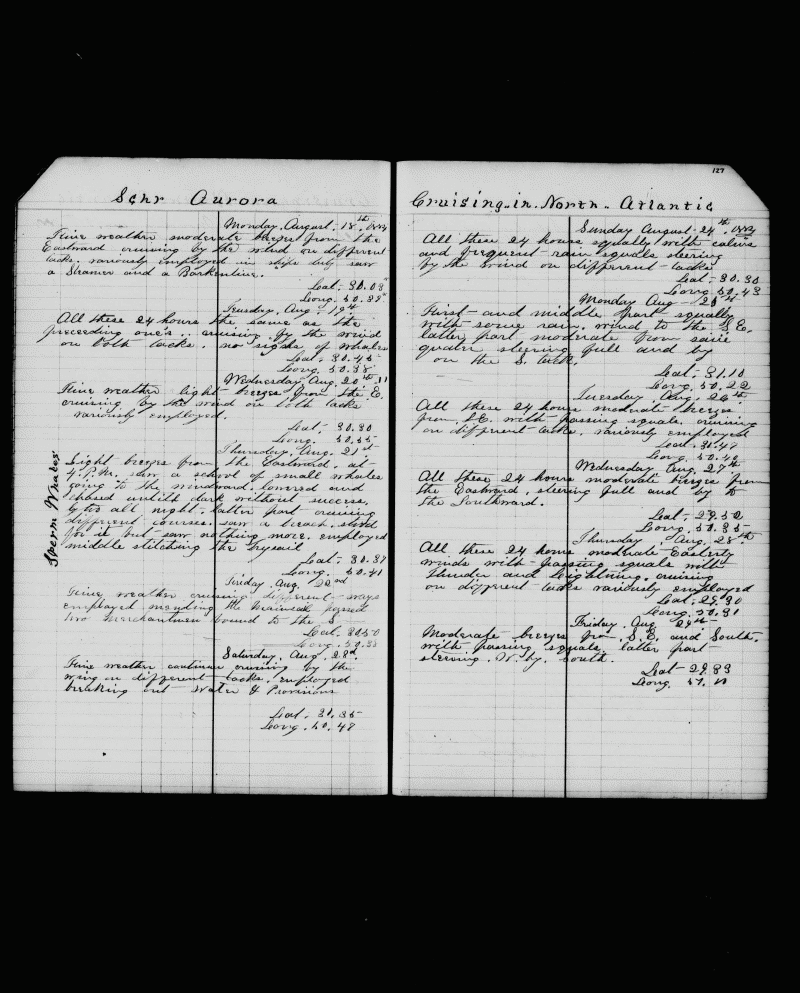 Schr Aurora
Monday. August. 18th
Fine weather moderate breezes from the
Eastward cruising by the wind on different
tacks. variously employed in ships duty saw
a Steamer and a Barkentine.
Lat. 30.08"
Long. 50.39"
Tuesday. Aug. 19th
All these 24 hours the same as the
preceeding one's. cruising by the wind
on both tacks. no signs of whales
Lat. 30.45
Long. 50.38
Wednesday Aug. 20th
Fine weather light breezes from the E.
cruising by the wind on both tacks
variously employed.
Lat. 30.30
Long. 50.55
Thursday. Aug. 21st
Sperm Whales
Light breezes from the Eastward. at
4. P.M. saw a school of small whales
going to the windward. lowered and
chased untill dark without success.
by too all night. latter part cruising
different courses. saw a breach. stood
for it but saw nothing more. employed
middle stitching the trysail
Lat. 30.37
Long. 50.41
Friday Aug. 22nd
Fine weather cruising different ways
employed mending the mainsail passed
two merchantmen bound to the S
Lat. 30.50
Long. 50.38
Saturday. Aug. 23d.
Fine weather continue cruising by the
wing on different tacks. employed
breaking out Water & Provisions
Lat. 31.35
Long. 50.48
127
Cruising in. North. Atlantic
Sunday August. 24th
All these 24 hours squally with calms
and frequent rain squals steering
by the wind on different tacks
Lat. 30.30
Long 50.43
Monday Aug 25th
First and middle part squally
with some rain. wind to the S.E.
latter part moderate from same
quater steering full and by
on the S. tack.
Lat. 31.10
Long. 50.22
Tuesday. Aug. 26th.
All these 24 hours moderate breezes
from S.E. with passing squals. cruising
on different tacks. variously employed
Lat. 31.42
Long. 50.40
Wednesday Aug. 27th
All these 24 hours moderate breezes from
the Eastward. steering full and by to
the Southward.
Lat. 29.52
Long. 50.35
Thursday. Aug. 28th
All these 24 hours moderate Easterly
winds with passing squals with
thunder and Lightning. cruising
on different tacks variously employed
Lat. 29.30
Long. 50.31
Friday. Aug 29th
Moderate breezes from S.E. and South.
with passing squals. latter part
steering W. by. South.
Lat 29.33
Long.